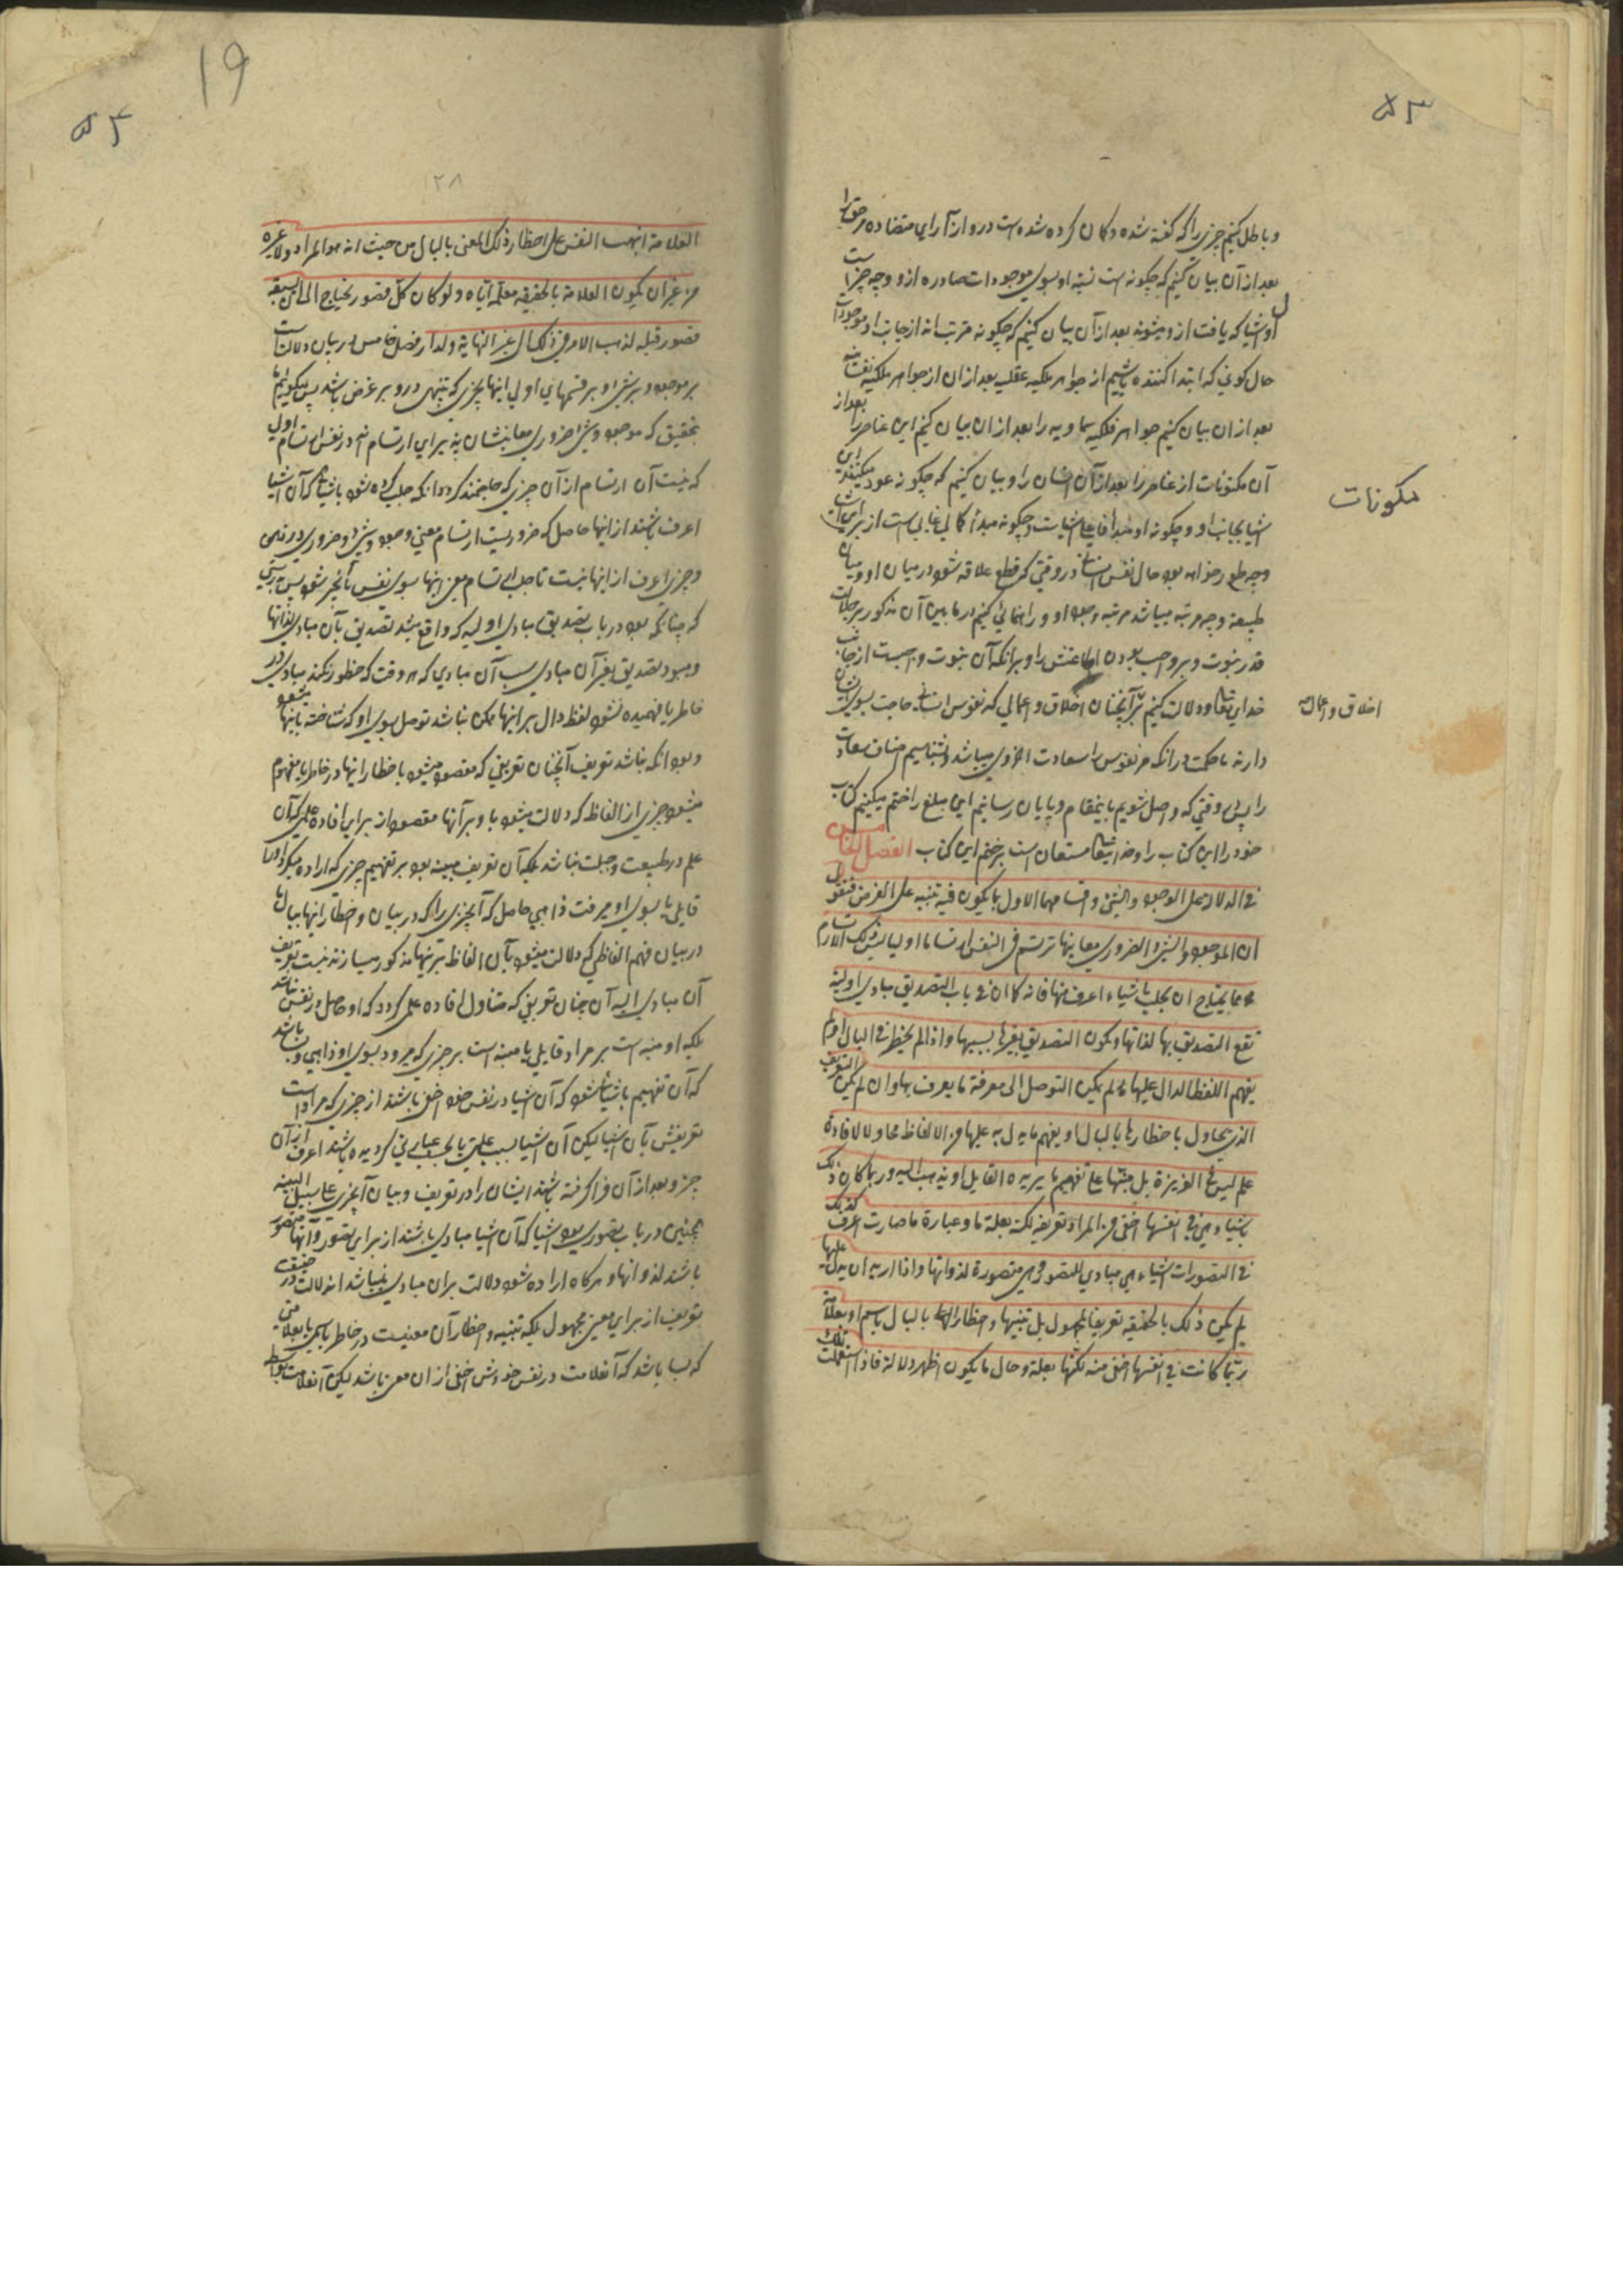 ۵۳
و باطل کنیم چیزی را که گفته شده و کمان کرده شده است درو از آرای متضاده مر حق را
بعد از آن بیان کنیم که چکونه است نسبة او بسوی موجودات صادره از و وچه چیز است
اول اشیا که یافت ازو میشوند بعد از آن بیان کنیم که چکونه مرتب اند از جانب او موجودات
حال کونی که ابتدا کننده باشیم از جواهر ملکیه عقلیه بعد از ان از جواهر ملکیه نفسانیه
بعد از ان بیان کنیم جواهر فلکیه سماویه را بعد از ان بیان کنیم این عناصر را بعد از
آن مکنونات از عناصر را بعد از آن انسان را و بیان کنیم که چکونه عود میکنند این
مکونات
اشیا بجانب او و چکونه او مبدا فاعلی اشیاست و چکونه مبدأ کمالی غایی است از برای اشیا
وچه طرح خواهد بود حال نفس انسانی در وقتی که قطع علاقه شود در میان او و میان
طبیعة وچه مرتبه میباشد مرتبه وجود او و راهنمائی کنیم در ما بین آن مذکور بر جلالت
قدر نبوت و بر واجب بودن اطاعتش را و برانکه آن نبوت واجبست از جانب
خدای تعالی و دلالت کنیم بر آنچنان اخلاق و اعمالی که نفوس انسانی حاجت بسوی ایشان
اخلاق و اعمال
دارند با حکمت در انکه مر نفوس را سعادت اخروی میباشد و بشناسیم اصناف سعادات
را پس وقتی که واصل شویم باینمقام و پایان رسانیم این مبلغ را ختم میکنیم کتاب
خود را این کتاب را و خدایتعالی مستعان است بر ختم این کتاب الفصل الخامس
فی الدلالة علی الوجود والشئ و اقسامهما الاول بما یکون فیه تنبیه علی الغرض فنقول
ان الموجود والشئ والضروری معانیها ترتسم فی النفس ارتساما اولیا لیس ذلک الارتسام
مما یحتاج ان یجلب باشیاء اعرف منها فانه کما ان فی باب التصدیق مبادی اولیة
تقع التصدیق بها لذاتها ویکون التصدیق بغیرها بسببها و اذا لم یخطر فی البال او لم
یفهم اللفظ الدال علیها لم یکن التوصل الی معرفة ما یعرف بها وان لم یکن التعریف
الذی یحاول باخطارها بالبال او یفهم ما یدل به علیها من الالفاظ محاولا لافادة
علم لیس فی الغریزة بل منبها علی تفهیم ما یریده القایل او یذهب الیه و ربما کان ذلک
باشیاء هی فی انفسها اخفی من المراد تعریفه لکنه بعلة ما وعبارة ما صارت اعرف کذلک
فی التصورات اشیاء هی مبادی للتصور و هی متصورة لذواتها و اذا ارید ان یدل علیها
لم یکن ذلک بالحقیقه تعریفا لمجهول بل تنبیها و اخطارا لها بالبال باسم او بعلامة
ربما کانت فی انفسها اخفی منه لکنها بعلة وحال ما یکون اظهر دلالة فاذا استعملت تلک
19
۵۴
۱۲۸
العلامة انتهت النفس علی اخطار ذلک المعنی بالبال من حیث انه هو المراد ولا غیره
من غیر ان یکون العلامة بالحقیقه معلمة ایاه ولو کان کل تصور یحتاج الی ان یسبقه
تصور قبله لذهب الامر فی ذلک الی غیر النهایة ولدار فصل خامس در بیان دلالت است
بر موجود و بر شئ و بر قسمهای اولی اینها بچیزی که تنبهی درو بر غرض باشد پس میکوئیم ما
بتحقیق که موجود و شئ و ضروری معانیشان پذیرای ارتسام اند در نفس ارتسام اولی
که نیست آن ارتسام از آن چیزی که حاجتمند کردد انکه جلب کرده شود باشیائی که آن اشیا
اعرف باشند از اینها حاصل که ضروریست ارتسام معنی وجود و شئ و ضروری در نفس
و چیزی اعرف از اینها نیست تا جلب ارتسام معنی اینها بسوی نفس بآنچیز شود پس بدرستی
که چنانکه بود در باب تصدیق مبادی اولیه که واقع میشد تصدیق بآن مبادی لذاتها
و میبود تصدیق بغیر آن مبادی بسبب آن مبادی که هر وقت که خطور نکند مبادی در
خاطر یا فهمیده نشود لفظ دال بر اینها ممکن نباشد توصل بسوی او که شناخته باینها میشود
و بود انکه نباشد تعریف آنچنان تعریفی که مقصود میشود باخطار اینها در خاطر یا بفهم
میشود چیزی از الفاظ که دلالت میشود باو بر آنها مقصود از برای افاده علمی که آن
علم در طبیعت و جبلت نباشد بلکه آن تعریف مبینه بود بر تفهیم چیزی که اراده میکند او را
قایل یا بسوی او میرفت ذاهبی حاصل که آنچیزی را که در بیان و اخطار اینها ببال یا
در بیان فهم الفاظی که دلالت میشود بآن الفاظ بر اینها مذکور میسازند نیست تعریف
آن مبادی الیه آن چنان تعریفی که متناول افاده علمی کردد که او حاصل در نفس نباشد
بلکه او منبه است بر مراد قایل یا منبه است بر چیزی که میرود بسوی او ذاهبی و باشد
که آن تفهیم باشیائی شود که آن اشیا در نفس خود اخفی باشند از چیزی که مراد است
تعریفش بآن اشیا لیکن آن اشیا بسبب علتی یا بحسب عبارتی کردیده باشند اعرف از آن
چیز و بعد از آن فرا کرفته باشند ایشان را در تعریف و بیان آنچیز علی سبیل البینه
همچنین در باب تصوری بود اشیا که آن اشیا مبادی باشند از برای تصور و آنها متصور
باشند لذواتها و هرکاه اراده شود دلالت بران مبادی نمیباشد اندلالت در حقیقت
تعریف از برای معنی مجهول بلکه تنبیه و اخطار آن معنیست در خاطر باسمی یا بعلامتی
که بسا باشد که آنعلامت در نفس خودش اخفی از ان معنی باشد لیکن آنعلامت بواسطه